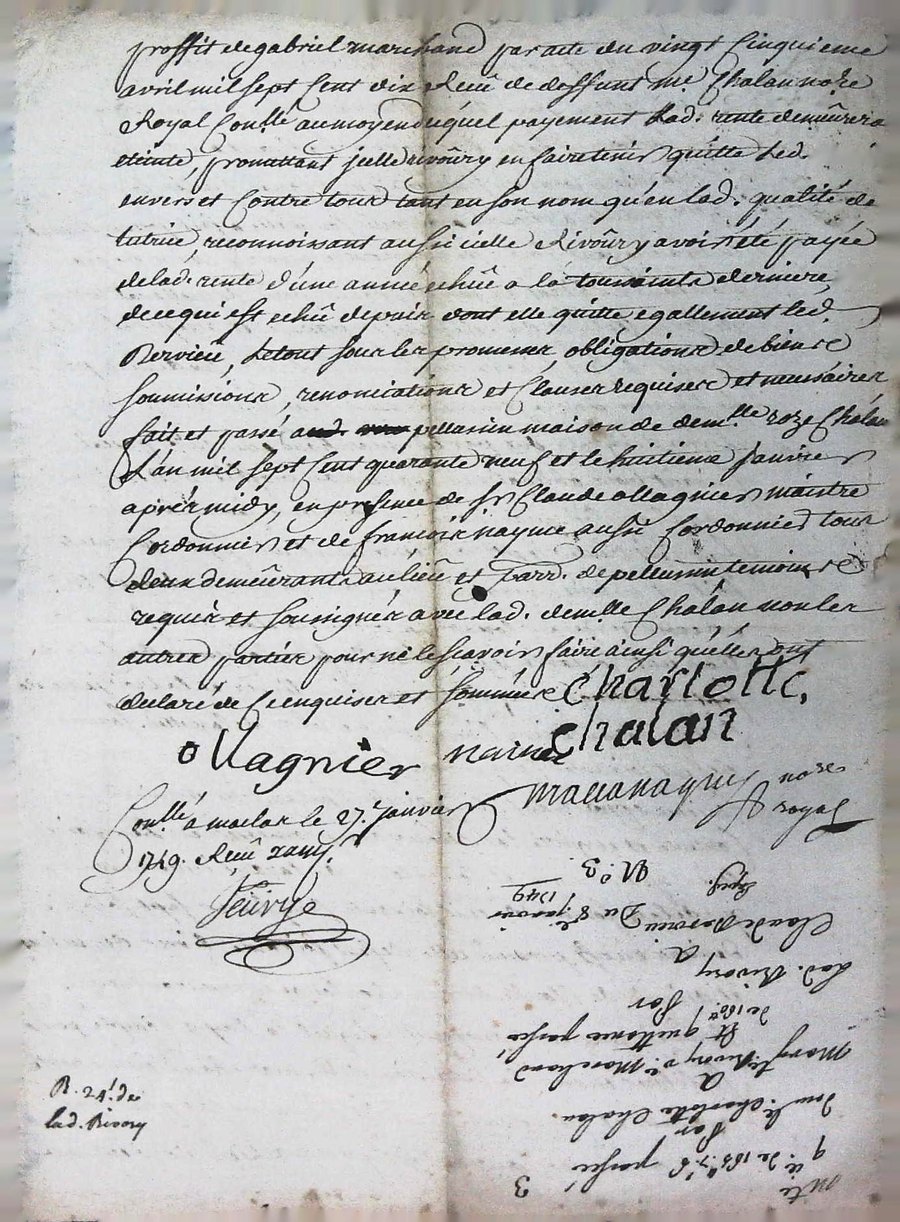 proffit de gabriel marchand par acte du vingt Cinquieme
avril mil sept Cent dix Receü de deffunt me. Chalan nore
Royal Con.lle au moyen duquel payement Lad. rente demeûrera
eteinte, promettant jcelle rivoûry en faire tenir quitte Led.
envers et Contre tous tant en son nom qu'en lad. qualité de
tutrice, reconnoissant aussi icelle Rivôury avoir été payée
de lad. rente d'une année echüe a la toussaints derniere,
de ce qui est echû depuis dont elle quitte egallement led.
Dervieü, Le tout sous les promesses, obligations de biens
soumissions, renonciations et Clauses requises et necessaires
fait et passé pellussin maison de dem.lle roze Chalan
L'an mil sept Cent quarante neuf et le huitieme Janvier
apres midy, en presence de sr Claude ollagnier maistre
Cordonnier et de francois nayme aussi Cordonnier tous
deux demeûrants au lieü et parr. de pellussin temoins
requis et soussignés avec lad. demlle Chalan non les
autres parties pour ne le sçavoir faire ainsi qu'elles ont
declaré de Ce enquises et sommées Charlotte
Chalan
ollagnier
nore
royal
Con.llé a maclas le 27e. janvier
1749. Receü
N.° 3.
Du 8e janvier
1749
Claude Dervieu
A
Lad. Rivory
Par
Et quittance passée
Mary Rivory ve. Marchand
A
Dmlle Charlotte Chalan
Par
passée
3
R. 24l. de
lad. Rivory